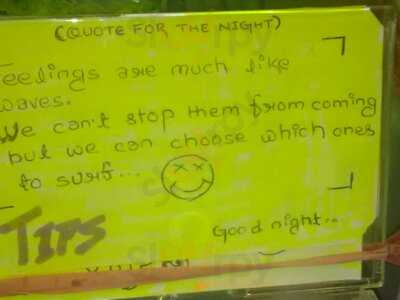 (QUOTE FOR THE NIGHT)
Feelings are much like
waves.
We can't stop them from coming
but we can choose which ones
to surf...
Good night...
TIPS